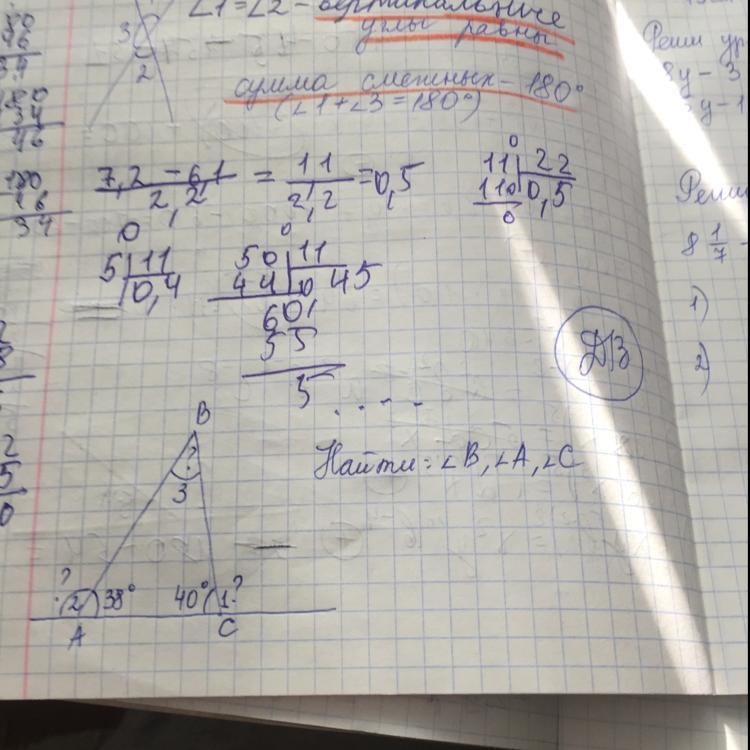 ∠1=∠2 - вертикальные
углы равны
3
2
сумма смежных - 180°
(∠1+∠3=180°)
7,2 - 6,1 / 2,2 = 1,1 / 2,2 = 0,5
11 | 22
110 | 0,5
0
5 | 11
0,4
50 | 11
44 | 0,45
60
55
5 ....
ДЗ
B
?
3
Найти: ∠B, ∠A, ∠C
? 2 38° 40° 1 ?
A C
Реши ур
8y - 3
y - 1
Реши
8 1/7 -
1)
2)